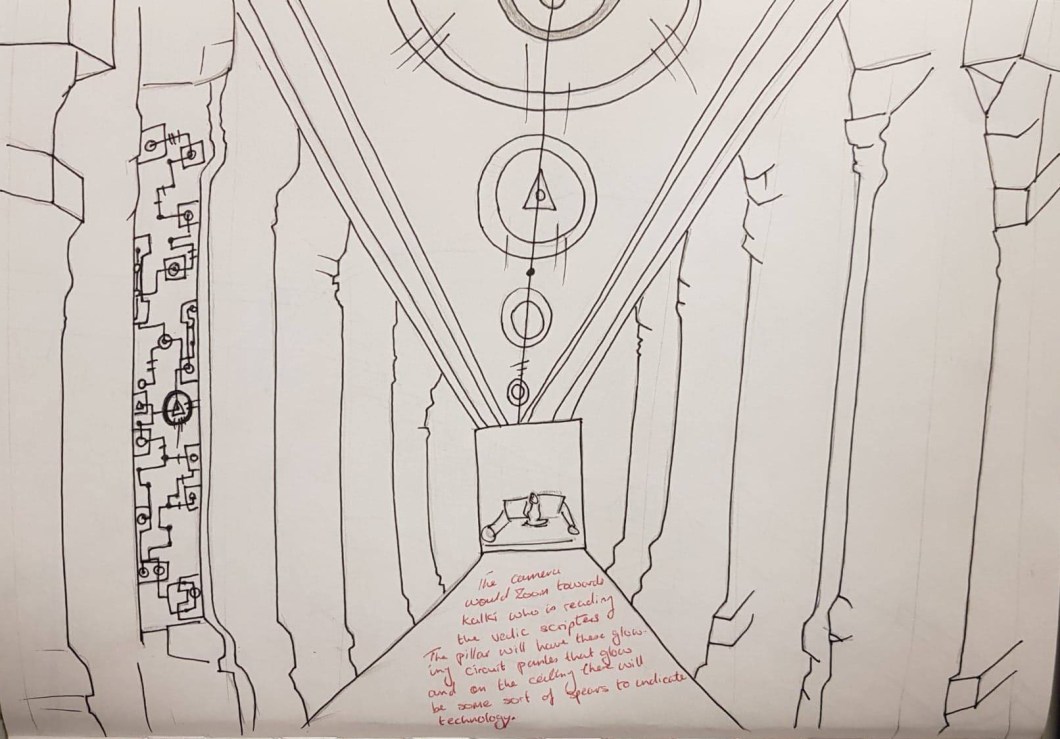 The camera
would Zoom towards
Kalki who is reading
the vedic scripters
The pillar will have these glow-
ing circuit panles that glow
and on the ceiling there will
be some sort of spears to indicate
technology.